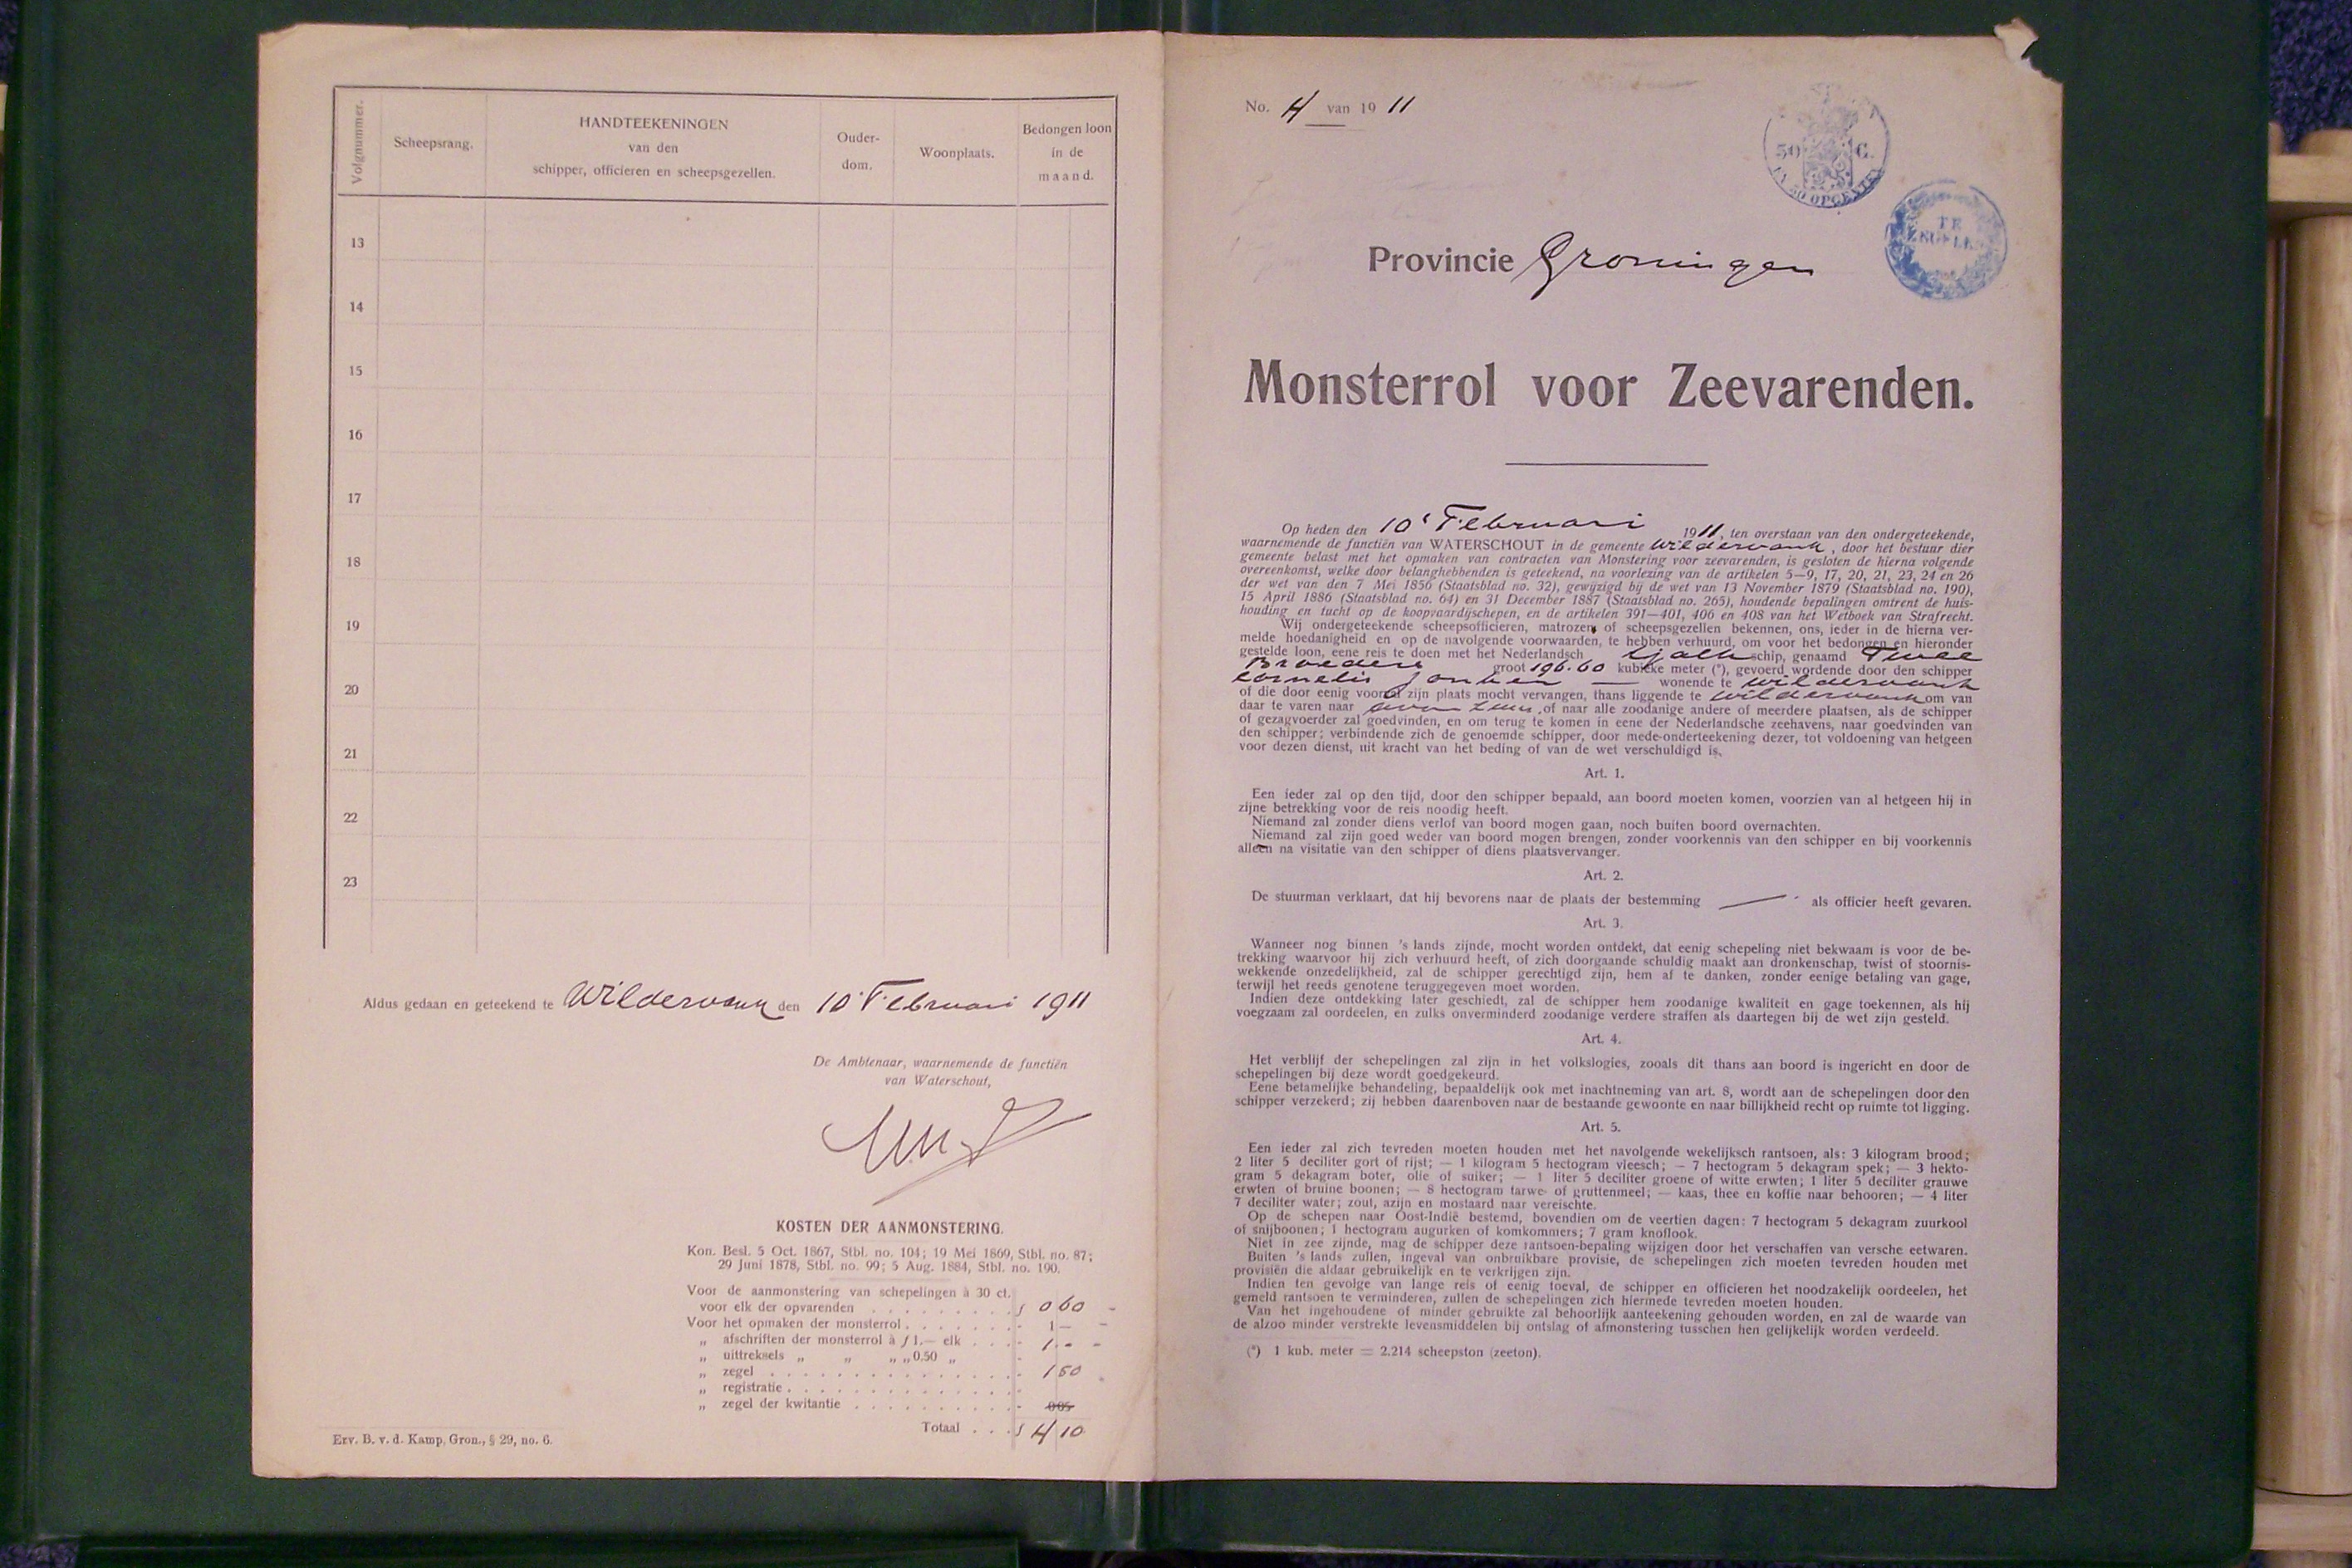 Volgnummer.
Scheepsrang.
HANDTEEKENINGEN
van den
schipper, officieren en scheepsgezellen.
Ouder-
dom.
Woonplaats.
Bedongen loon
in de
maand.
13
14
15
16
17
18
19
20
21
22
23
Aldus gedaan en geteekend te Wildervank den 10 Februari 1911
De Ambtenaar, waarnemende de functiën
van Waterschout,
KOSTEN DER AANMONSTERING.
Kon. Besl. 5 Oct. 1867, Stbl. no. 104; 19 Mei 1869, Stbl. no. 87;
29 Juni 1878, Stbl. no. 99; 5 Aug. 1884, Stbl. no. 190.
Voor de aanmonstering van schepelingen à 30 ct.
voor elk der opvarenden . . . . . . . . . ƒ 0 60 -
Voor het opmaken der monsterrol . . . . . . . - 1 – -
„ afschriften der monsterrol à ƒ 1.— elk . . . - 1 . - -
„ uittreksels „ „ „ „ 0.50 „ -
„ zegel . . . . . . . . . . . . . . . . - 1 50
„ registratie . . . . . . . . . . . . . . . -
„ zegel der kwitantie . . . . . . . . . . - 005
Totaal . . . ƒ 4 10
Erv. B. v. d. Kamp, Gron., § 29, no. 6.
No. 4 van 19 11
50 C.
EN 50 OPCENTEN
TE
ZEGELEN
Provincie Groningen
Monsterrol voor Zeevarenden.
Op heden den 10 Februari 1911, ten overstaan van den ondergeteekende,
waarnemende de functiën van WATERSCHOUT in de gemeente Wildervank, door het bestuur dier
gemeente belast met het opmaken van contracten van Monstering voor zeevarenden, is gesloten de hierna volgende
overeenkomst, welke door belanghebbenden is geteekend, na voorlezing van de artikelen 5—9, 17, 20, 21, 23, 24 en 26
der wet van den 7 Mei 1856 (Staatsblad no. 32), gewijzigd bij de wet van 13 November 1879 (Staatsblad no. 190),
15 April 1886 (Staatsblad no. 64) en 31 December 1887 (Staatsblad no. 265), houdende bepalingen omtrent de huis-
houding en tucht op de koopvaardijschepen, en de artikelen 391—401, 406 en 408 van het Wetboek van Strafrecht.
Wij ondergeteekende scheepsofficieren, matrozen of scheepsgezellen bekennen, ons, ieder in de hierna ver-
melde hoedanigheid en op de navolgende voorwaarden, te hebben verhuurd, om voor het bedongen en hieronder
gestelde loon, eene reis te doen met het Nederlandsch tjalk schip, genaamd Twee
Broeders groot 196.60 kubieke meter (*), gevoerd wordende door den schipper
Cornelis Jonker — wonende te Wildervank
of die door eenig voorval zijn plaats mocht vervangen, thans liggende te Wildervank om van
daar te varen naar over Zee, of naar alle zoodanige andere of meerdere plaatsen, als de schipper
of gezagvoerder zal goedvinden, en om terug te komen in eene der Nederlandsche zeehavens, naar goedvinden van
den schipper; verbindende zich de genoemde schipper, door mede-onderteekening dezer, tot voldoening van hetgeen
voor dezen dienst, uit kracht van het beding of van de wet verschuldigd is.
Art. 1.
Een ieder zal op den tijd, door den schipper bepaald, aan boord moeten komen, voorzien van al hetgeen hij in
zijne betrekking voor de reis noodig heeft.
Niemand zal zonder diens verlof van boord mogen gaan, noch buiten boord overnachten.
Niemand zal zijn goed weder van boord mogen brengen, zonder voorkennis van den schipper en bij voorkennis
alleen na visitatie van den schipper of diens plaatsvervanger.
Art. 2.
De stuurman verklaart, dat hij bevorens naar de plaats der bestemming — als officier heeft gevaren.
Art. 3.
Wanneer nog binnen 's lands zijnde, mocht worden ontdekt, dat eenig schepeling niet bekwaam is voor de be-
trekking waarvoor hij zich verhuurd heeft, of zich doorgaande schuldig maakt aan dronkenschap, twist of stoornis-
wekkende onzedelijkheid, zal de schipper gerechtigd zijn, hem af te danken, zonder eenige betaling van gage,
terwijl het reeds genotene teruggegeven moet worden.
Indien deze ontdekking later geschiedt, zal de schipper hem zoodanige kwaliteit en gage toekennen, als hij
voegzaam zal oordeelen, en zulks onverminderd zoodanige verdere straffen als daartegen bij de wet zijn gesteld.
Art. 4.
Het verblijf der schepelingen zal zijn in het volkslogies, zooals dit thans aan boord is ingericht en door de
schepelingen bij deze wordt goedgekeurd.
Eene betamelijke behandeling, bepaaldelijk ook met inachtneming van art. 8, wordt aan de schepelingen door den
schipper verzekerd; zij hebben daarenboven naar de bestaande gewoonte en naar billijkheid recht op ruimte tot ligging.
Art. 5.
Een ieder zal zich tevreden moeten houden met het navolgende wekelijksch rantsoen, als: 3 kilogram brood;
2 liter 5 deciliter gort of rijst; — 1 kilogram 5 hectogram vleesch; — 7 hectogram 5 dekagram spek; — 3 hekto-
gram 5 dekagram boter, olie of suiker; — 1 liter 5 deciliter groene of witte erwten; 1 liter 5 deciliter grauwe
erwten of bruine boonen; — 8 hectogram tarwe- of gruttenmeel; — kaas, thee en koffie naar behooren; — 4 liter
7 deciliter water; zout, azijn en mostaard naar vereischte.
Op de schepen naar Oost-Indië bestemd, bovendien om de veertien dagen: 7 hectogram 5 dekagram zuurkool
of snijboonen; 1 hectogram augurken of komkommers; 7 gram knoflook.
Niet in zee zijnde, mag de schipper deze rantsoen-bepaling wijzigen door het verschaffen van versche eetwaren.
Buiten 's lands zullen, ingeval van onbruikbare provisie, de schepelingen zich moeten tevreden houden met
provisiën die aldaar gebruikelijk en te verkrijgen zijn.
Indien ten gevolge van lange reis of eenig toeval, de schipper en officieren het noodzakelijk oordeelen, het
gemeld rantsoen te verminderen, zullen de schepelingen zich hiermede tevreden moeten houden.
Van het ingehoudene of minder gebruikte zal behoorlijk aanteekening gehouden worden, en zal de waarde van
de alzoo minder verstrekte levensmiddelen bij ontslag of afmonstering tusschen hen gelijkelijk worden verdeeld.
(*) 1 kub. meter = 2.214 scheepston (zeeton).